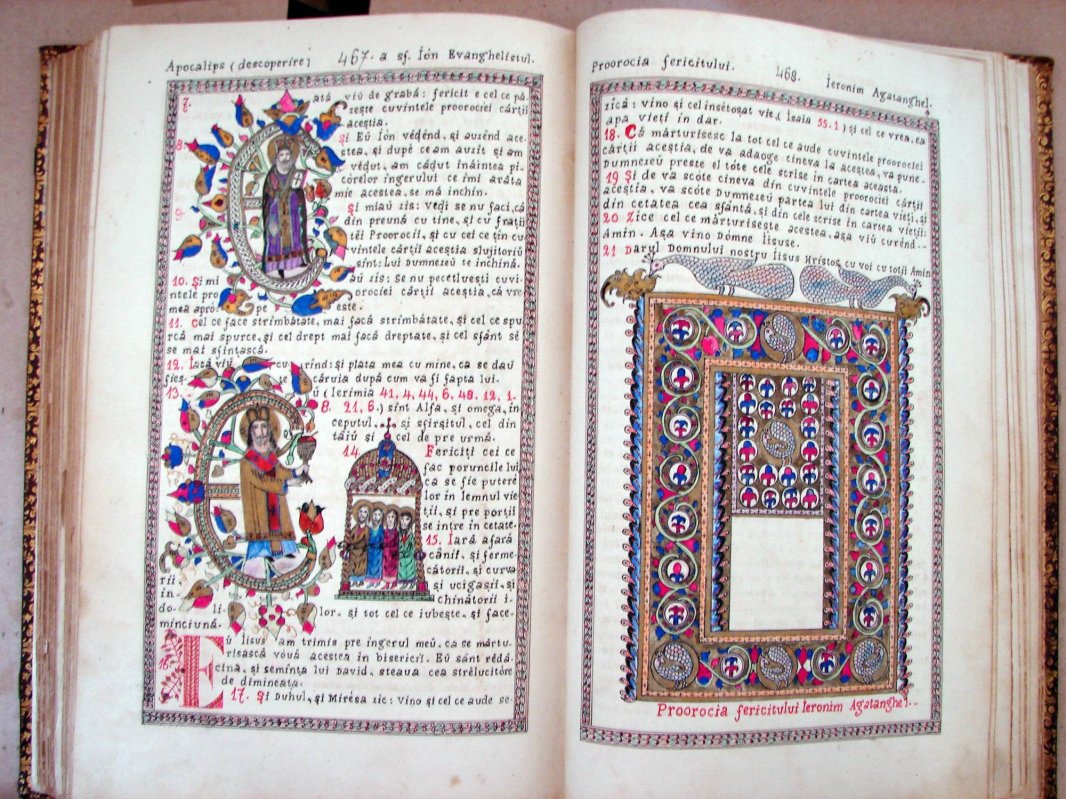 Apocalips (descoperire) 467. a sf. Ión Evanghelistul.
7. ată viŭ de grabă: fericit e cel ce pă-
zește cuvintele proorociei cărții
acestia.
8. Și Eŭ Ión vėdėnd, și auzind ace-
stea, și după ce am auzit și am
vėdut, am cădut înaintea pi-
córelor îngerului ce îmi arăta
mie acestea, se mă inchin.
9. Și miaŭ zis: vedi se nu faci, că
din preună cu tine, și cu frații
tėi Proorocii, și cu cei ce țin cu-
vintele cărții aceștia slujitoriŭ
sint: Lui Dumnezeŭ te închină.
10. Și mi aŭ zis: Se nu pecetluești cuvi-
ntele pro orociei cărții aceștia, că vre-
mea apró pe este.
11. Cel ce face strimbătate, mai facă strimbătate, și cel ce spu
rcă mai spurce, și cel drept mai facă dreptate, și cel sfânt sė
se mai sfințască.
12. Iată viŭ cu rind: și plata mea cu mine, ca se daŭ
fies- căruia după cum va fi fapta lui.
13. Eŭ (Ierimia 41, 4. 44, 6. 48. 12. 1-
8. 21, 6.) sint Alfa, și omega, în
ceputul, și sfirșitul, cel din
tăiŭ și cel de pre urmă.
14. Fericiți cei ce
fac poruncile lui
ca se fie putere
lor in lemnul vie
ții, și pre porții
se intre in cetate.
15. Iară afară
cânii, și ferme-
cătorii, și curva
rii, și ucigașii, și
in- chinătorii i-
do- li- lor, și tot cel ce iubește, și face-
minciună.
16. Eŭ Iisus am trimis pre îngerul meŭ, ca se mărtu-
risască vóuă acestea in biserici. Eŭ sânt rėdă-
cina, și semința lui David, steaua cea strėlucitóre
de dimineața.
17. Și Duhul, și Mirėsa zic: vino și cel ce aude se-
Proorocia fericitului. 468. Ieronim Agatanghel.
zică: vino și cel însetoșat vie, (Isaia 55. 1) și cel ce vrea, ea
apa vieți in dar.
18. Că mărturisesc la tot cel ce aude cuvintele proorociei
cărții aceștia, de va adaoge cineva la acestea, va pune.
Dumnezeŭ preste el tóte cele scrise in cartea aceasta.
19 Și de va scóte cineva din cuvintele proorociei cărții
aceștia, va scóte Dumnezeŭ partea lui din cartea vieții, și
din cetatea cea sfântă, și din cele scrise in cartea vieții:
20 Zice cel ce mărturisește acestea, așa viŭ curėnd..
Amin. Așa vino Dómne Iisuse.
21 Darul Domnului nostru Iisus Hristos cu voi cu totii Amin
Proorocia fericitului Ieronim Agatanghel..